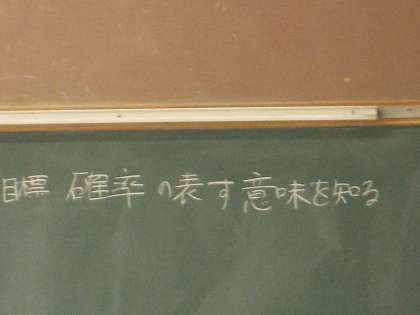 目標 確率の表す意味を知る